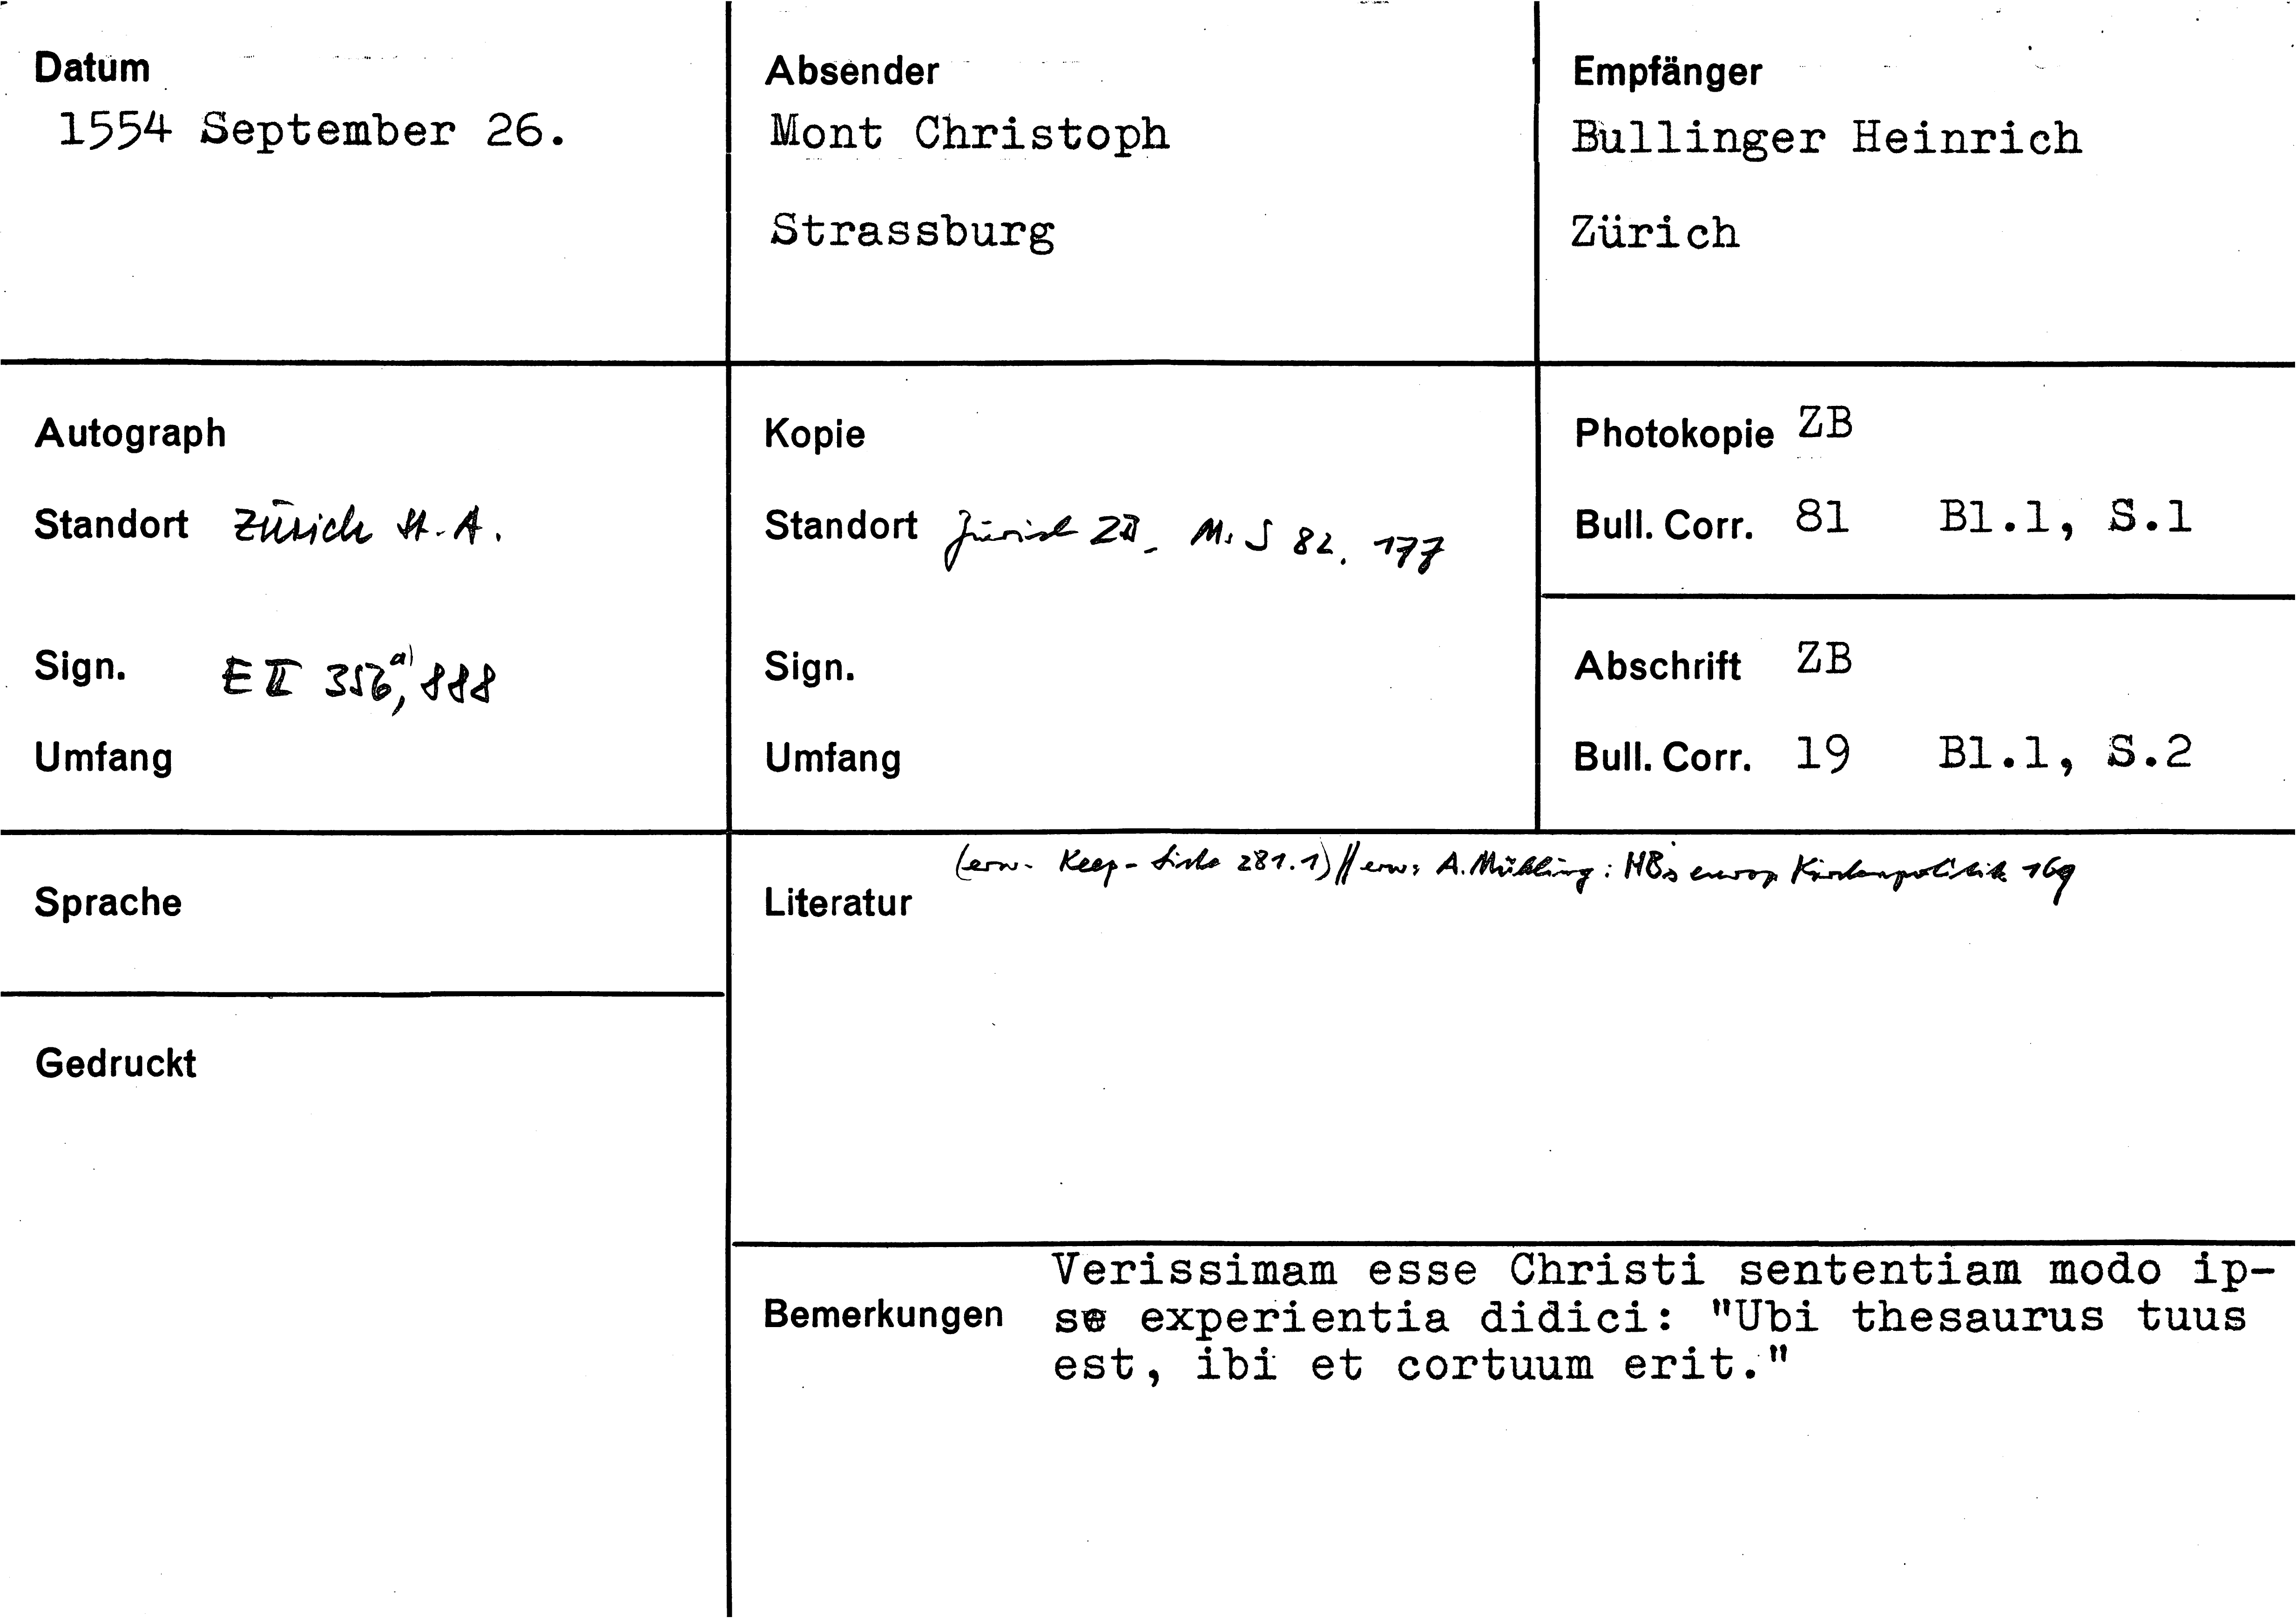 Datum
1554 September 26.
Absender
Mont Christoph
Strassburg
Empfänger
Bullinger Heinrich
Zürich
Autograph
Standort Zürich St. A.
Sign. E II 356a), 888
Umfang
Kopie
Standort Zürich ZB Ms S 82. 177
Sign.
Umfang
Photokopie ZB
Bull. Corr. 81 Bl.1, S.1
Abschrift ZB
Bull. Corr. 19 Bl.1, S.2
Sprache
Gedruckt
(erw. Keep-Liste 281.1) // erw: A. Mühling: HBs europ Kirchenpolitik 169
Literatur
Bemerkungen
Verissimam esse Christi sententiam modo ip-
se experientia didici: "Ubi thesaurus tuus
est, ibi et cortuum erit."